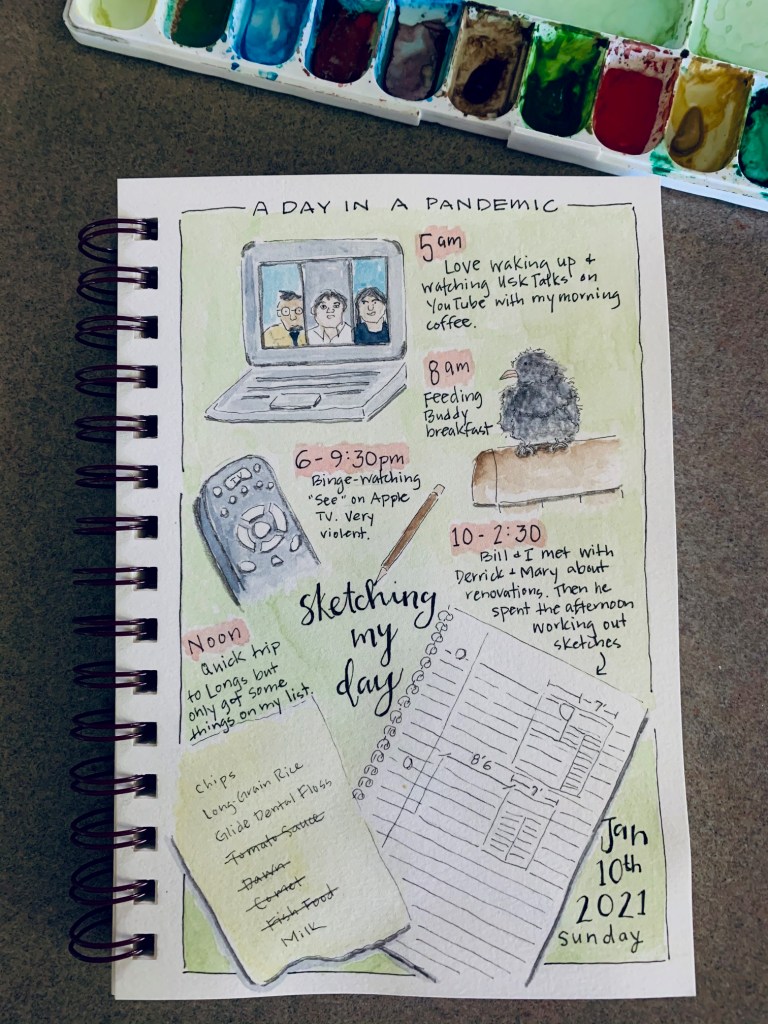 A DAY IN A PANDEMIC
5am
Love waking up &
watching 'Usk Talks' on
YouTube with my morning
coffee.
8am
Feeding
Buddy
breakfast
6-9:30pm
Binge-watching
"See" on Apple
TV. Very
violent.
10-2:30
Bill & I met with
Derrick & Mary about
renovations. Then he
spent the afternoon
working out
sketches
sketching
my
day
Noon
Quick trip
to Longs but
only got some
things on my list.
Chips
Long-Grain Rice
Glide Dental Floss
Tomato Sauce
Dawn
Comet
Fish Food
Milk
7'
8'6
7'
Jan
10th
2021
sunday